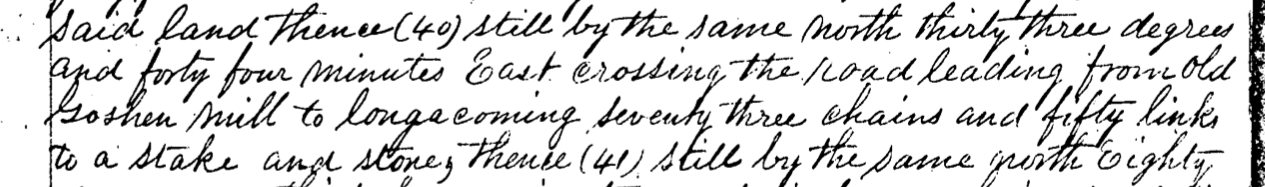 said land thence (40) still by the same north thirty three degrees
and forty four minutes East crossing the road leading from old
Goshen mill to longacoming seventy three chains and fifty links
to a stake and stone; thence (41) still by the same north Eighty